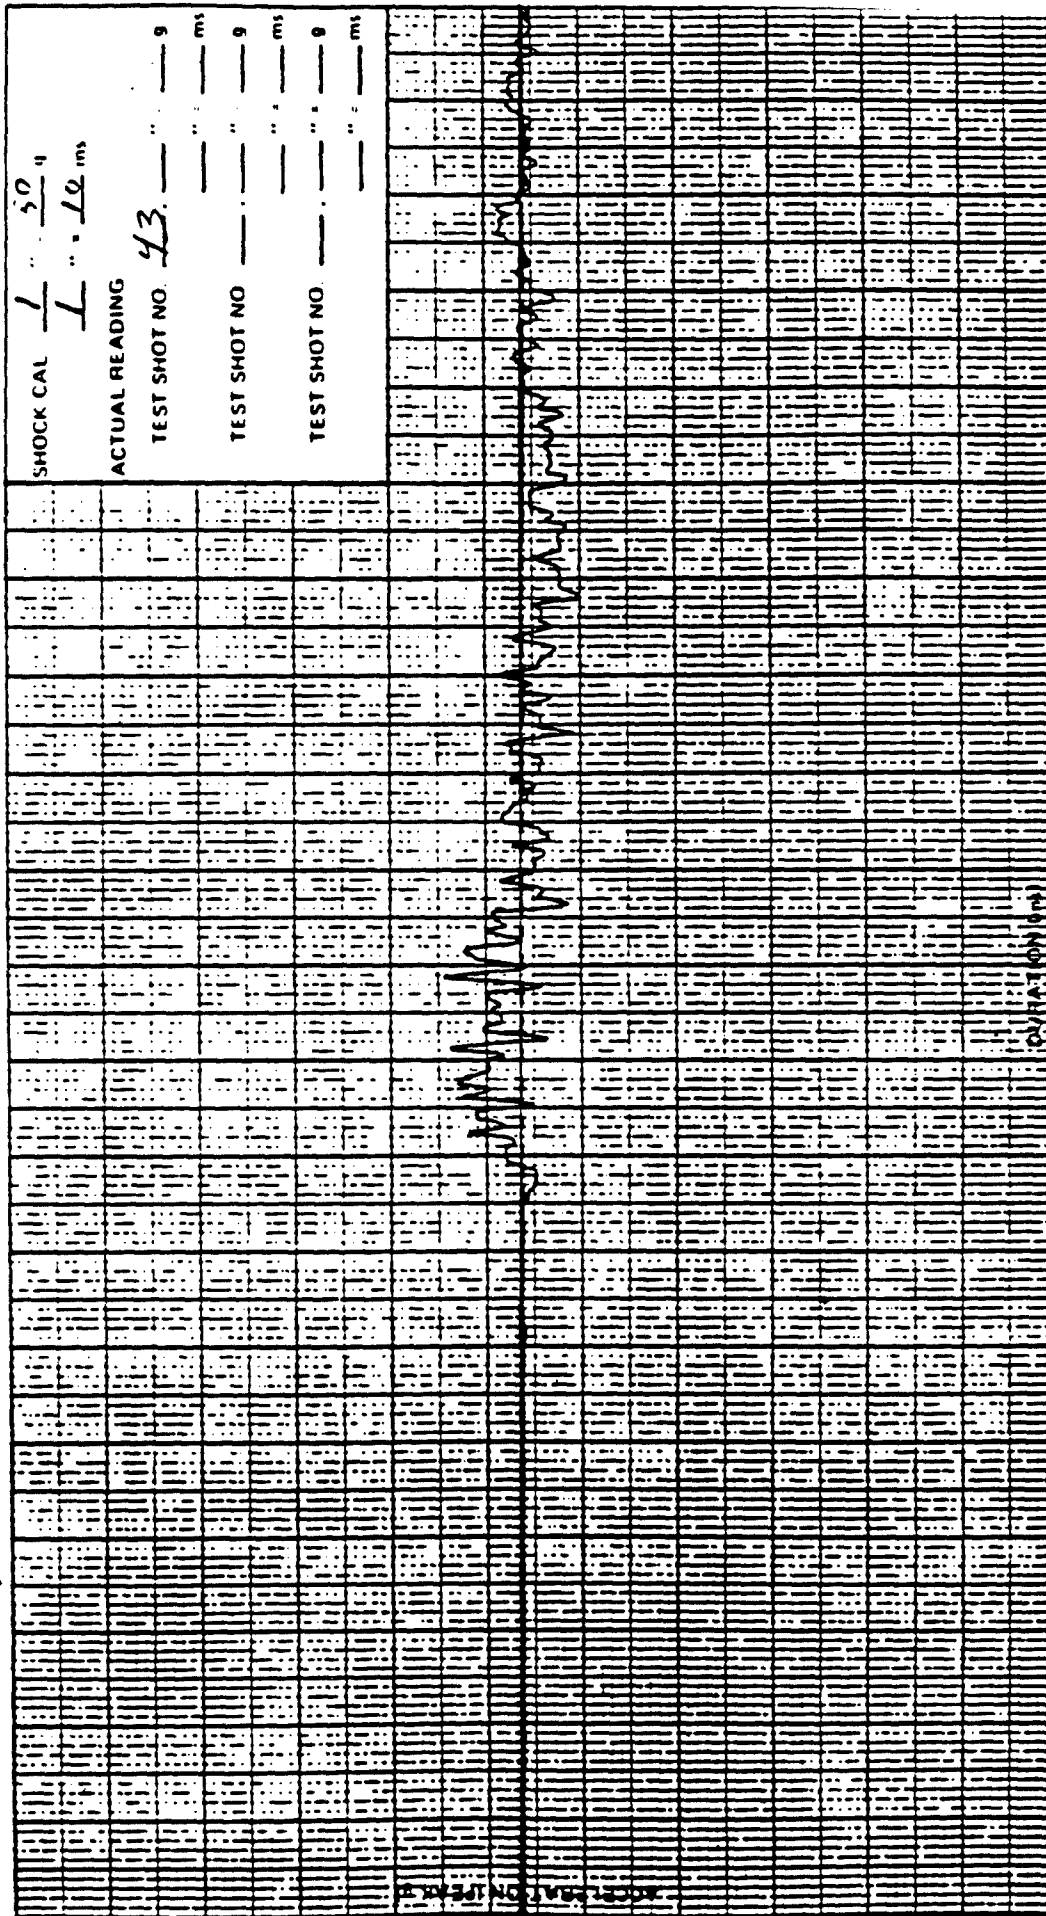 SHOCK CAL 1 " . 50 g
1 " = 10 ms
ACTUAL READING
TEST SHOT NO. 43. ___ " . ___ g
___ " = ___ ms
TEST SHOT NO ___ . ___ " ___ g
___ " = ___ ms
TEST SHOT NO. ___ . ___ " = ___ g
___ " = ___ ms
ACCELERATION (PEAK g)
DURATION (ms)